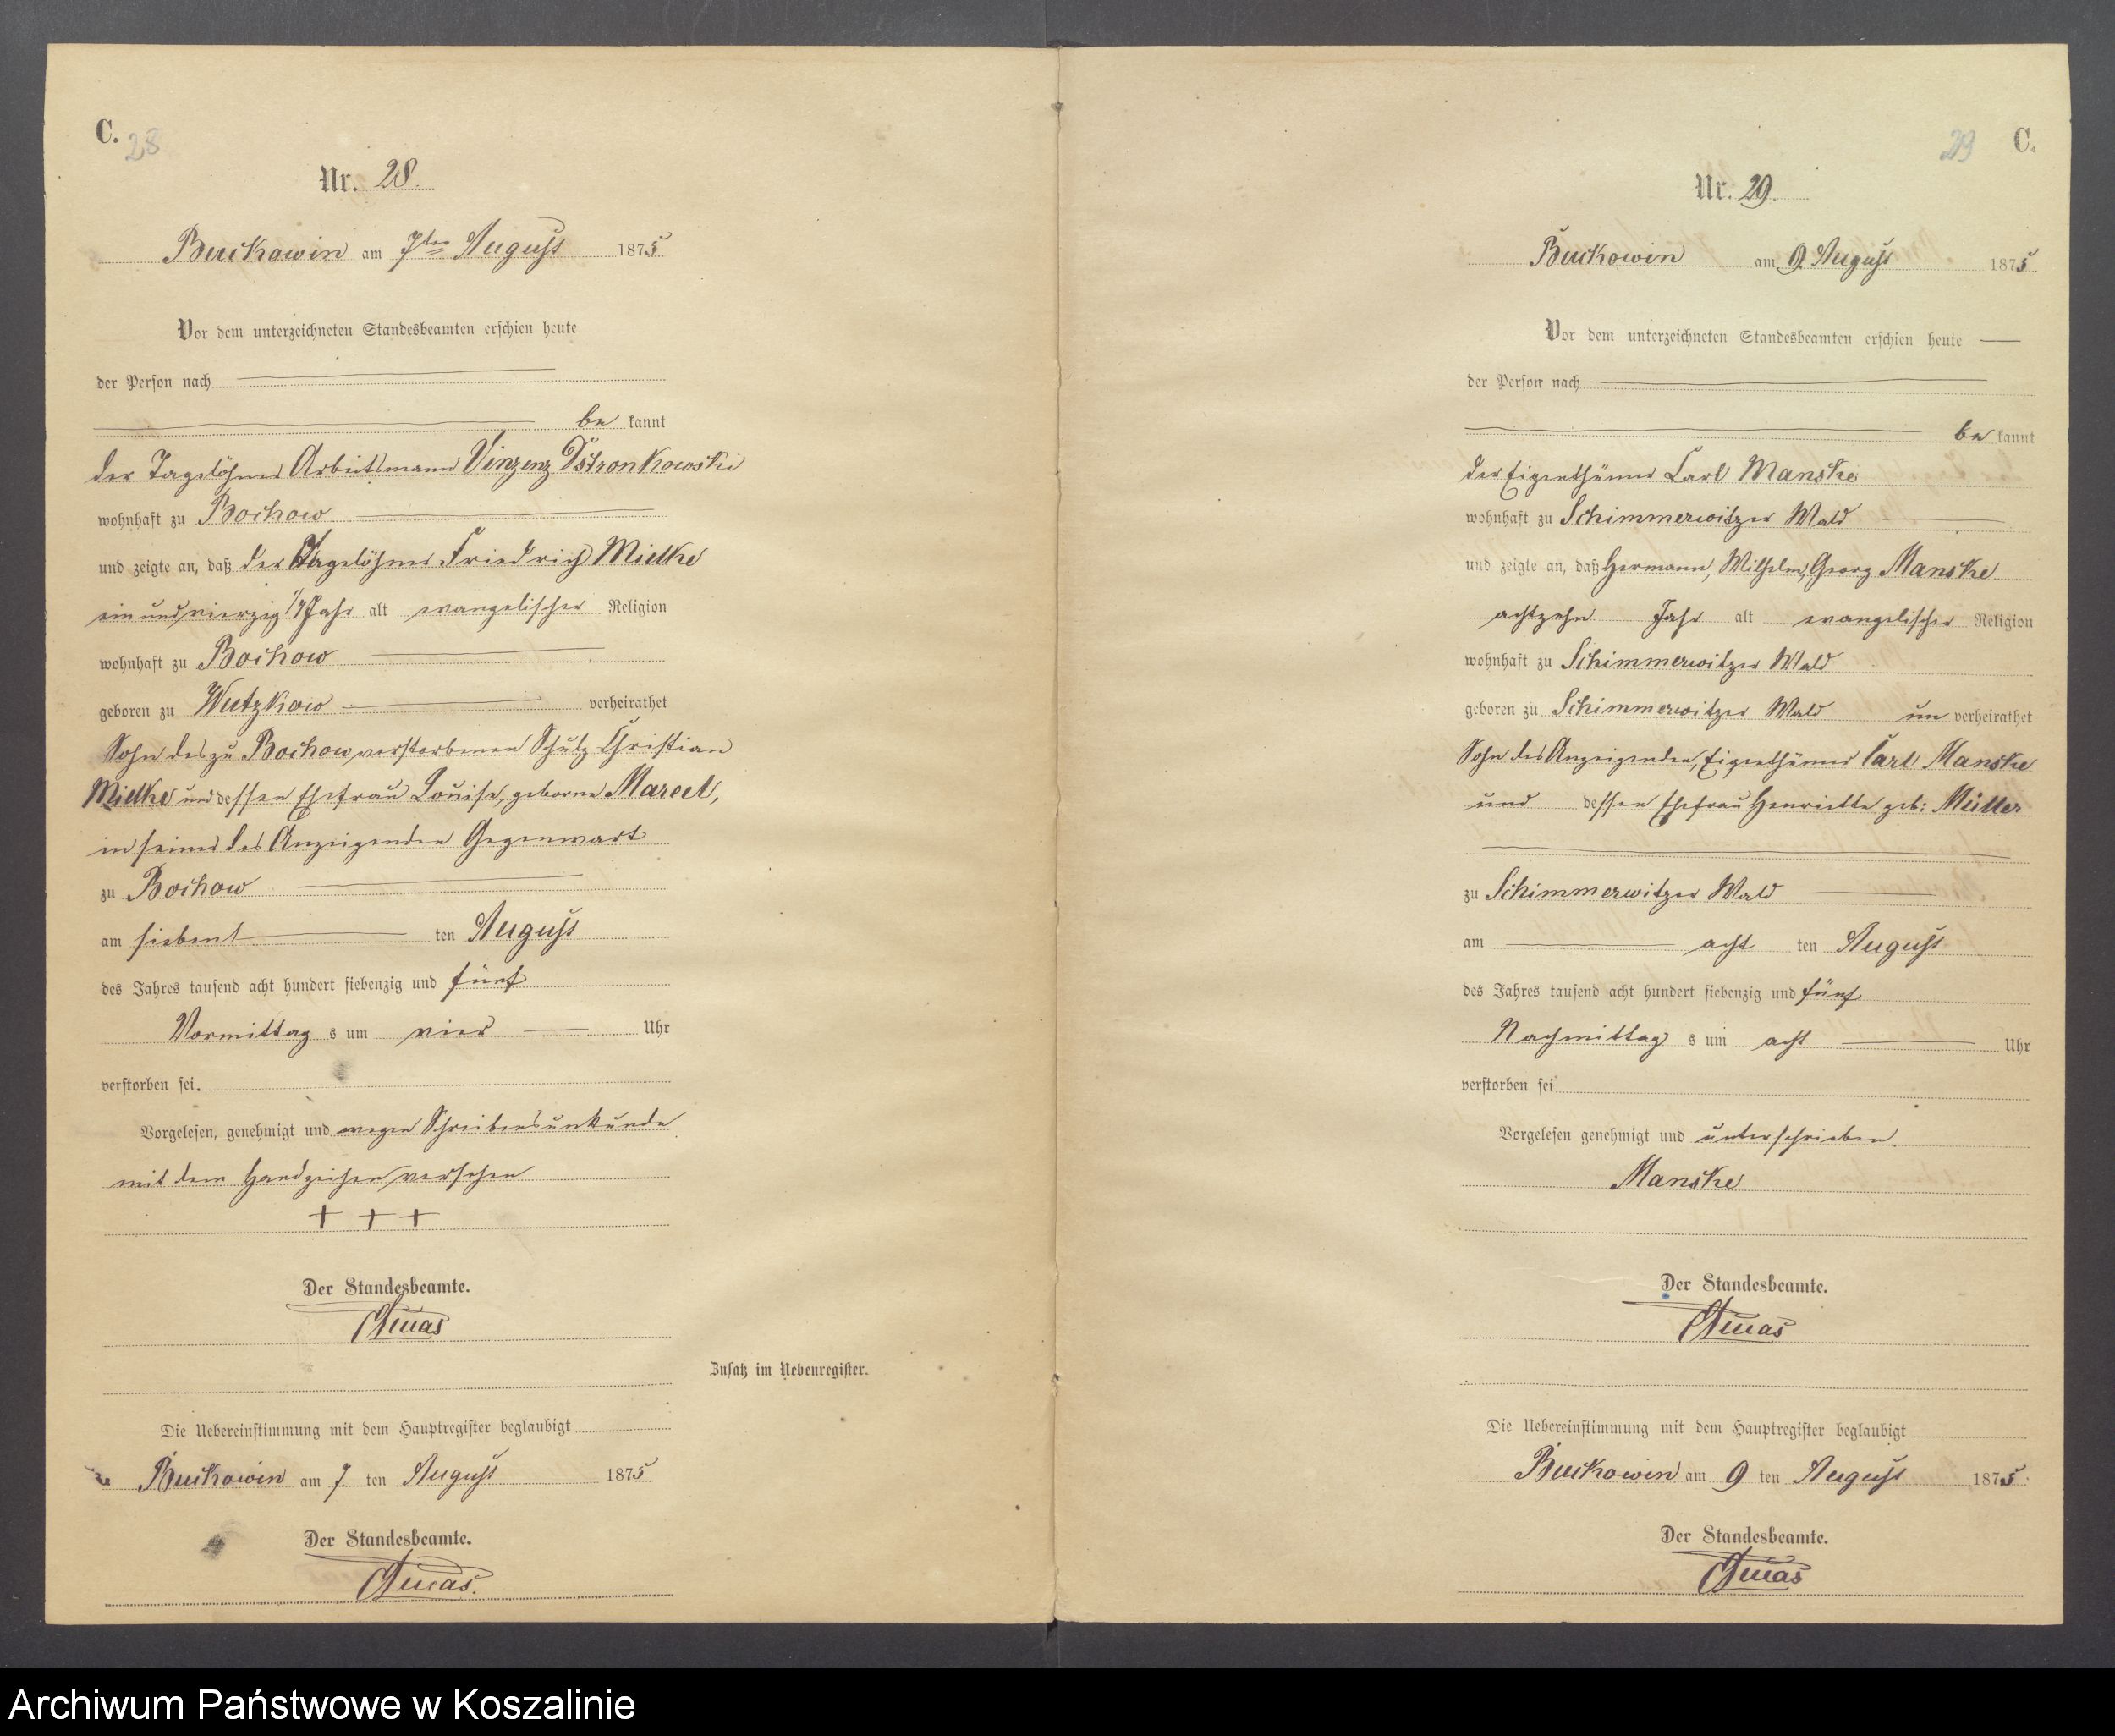 C. 28
Nr. 28.
Buckowin am 7ten August 1875
Vor dem unterzeichneten Standesbeamten erschien heute
der Person nach
be kannt
der Tagelöhner Arbeitsmann Vinzenz Ostronkowski
wohnhaft zu Bochow
und zeigte an, daß der Tagelöhner Friedrich Mielke
ein und vierzig Jahr alt evangelischer Religion
wohnhaft zu Bochow
geboren zu Wutzkow verheirathet
Sohn des zu Bochow verstorbenen Schulz Christian
Mielke und dessen Ehefrau Louise, geborne
in seiner des Anzeigenden Gegenwart
zu Bochow
am sieben ten August
des Jahres tausend acht hundert siebenzig und fünf
Vormittag s um vier Uhr
verstorben sei.
Vorgelesen, genehmigt und wegen Schreibensunkunde
mit dem Handzeichen versehen
+ + +
Der Standesbeamte.
Zusatz im Nebenregister.
Die Uebereinstimmung mit dem Hauptregister beglaubigt
Buckowin am 7 ten August 1875
Der Standesbeamte.
29 C.
Nr. 29.
Buckowin am 9. August 1875
Vor dem unterzeichneten Standesbeamten erschien heute
der Person nach
be kannt
der Eigenthümer Carl Manske
wohnhaft zu Schimmerwitzer Wald
und zeigte an, daß Hermann, Wilhelm, Georg Manske
achtzehn Jahr alt evangelischer Religion
wohnhaft zu Schimmerwitzer Wald
geboren zu Schimmerwitzer Wald un verheirathet
Sohn des Anzeigenden, Eigenthümer Carl Manske
und dessen Ehefrau Henriette geb: Müller
zu Schimmerwitzer Wald
am acht ten August
des Jahres tausend acht hundert siebenzig und fünf
Nachmittag s um acht Uhr
verstorben sei
Vorgelesen genehmigt und unterschrieben
Manske
Der Standesbeamte.
Die Uebereinstimmung mit dem Hauptregister beglaubigt
Buckowin am 9 ten August 1875
Der Standesbeamte.
Archiwum Państwowe w Koszalinie